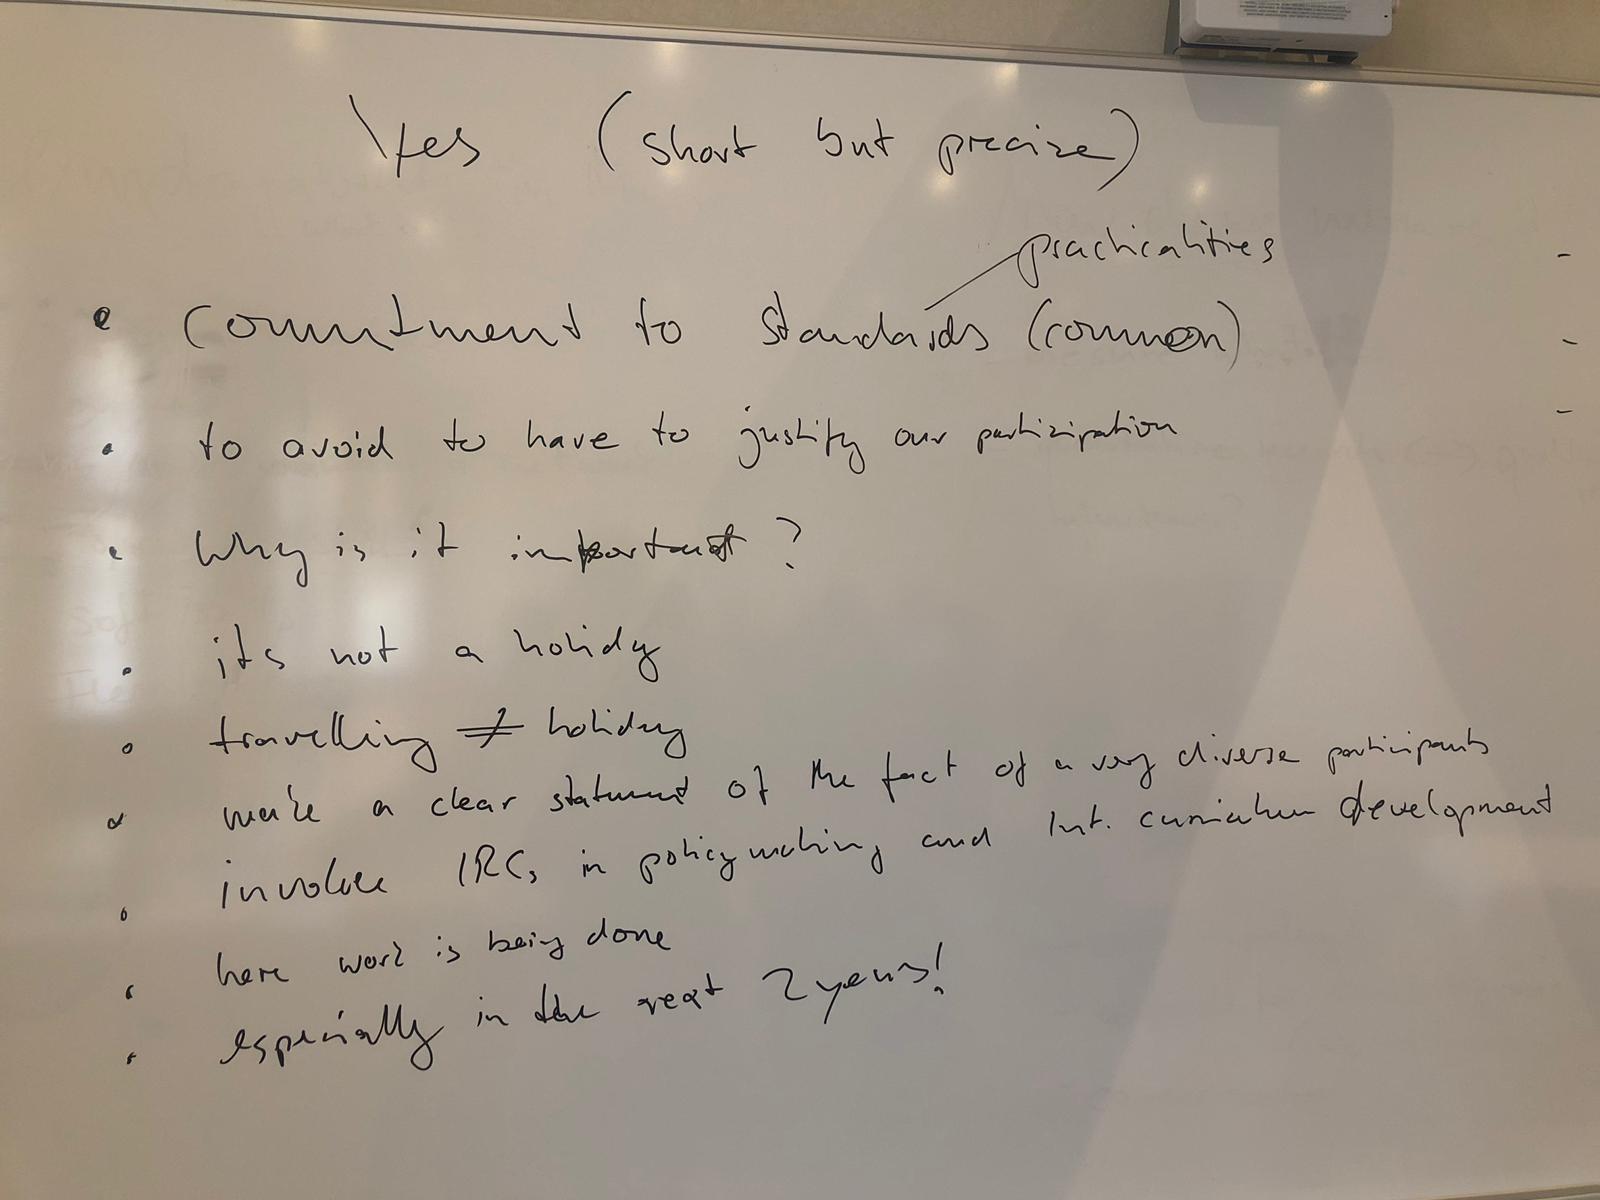 Yes (short but precize)
practicalities
• commitment to standards (common)
• to avoid to have to justify our partizipation
• Why is it important?
• its not a holidy
• travelling ≠ holiday
• make a clear statement of the fact of a very diverse participants
• involve IRCs in policymaking and Int. curriculum development
• here work is being done
• especially in the next 2 years!